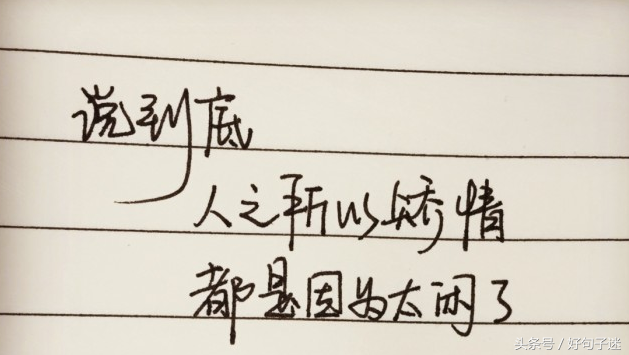 说到底
人之所以矫情
都是因为太闲了
头条号/好句子迷